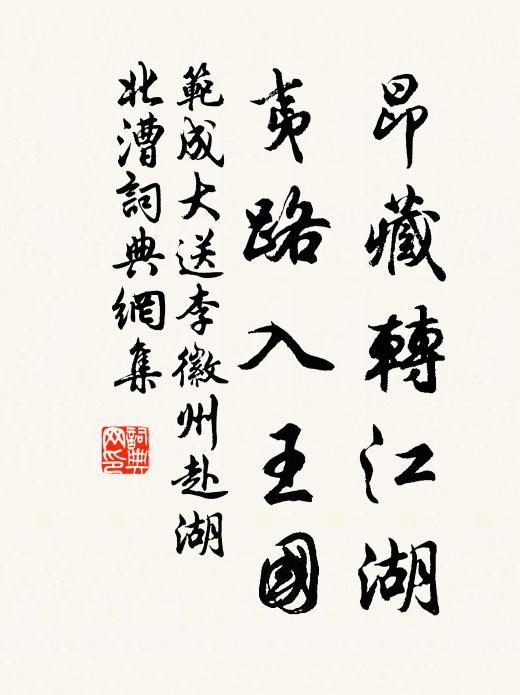 昂藏轉江湖
夷路入王國
範成大送李徽州赴湖
北漕詞典網集
詞典
网印